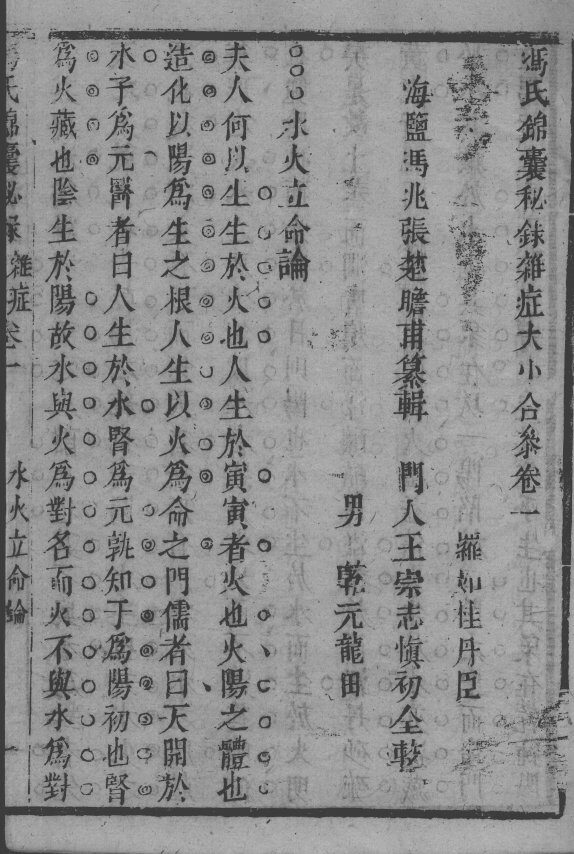 馮氏錦囊秘錄雜症大小合叅卷一
羅如桂丹臣
海鹽馮兆張楚瞻甫纂輯　門人王崇志慎初仝較
男　乾元龍田
水火立命論
夫人何以生生於火也人生於寅寅者火也火陽之體也
造化以陽爲生之根人生以火爲命之門儒者曰天開於
水子爲元醫者曰人生於水腎爲元孰知子爲陽初也腎
爲火藏也陰生於陽故水與火爲對名而火不與水爲對
馮氏錦囊秘錄　雜症卷一　水火立命論　一